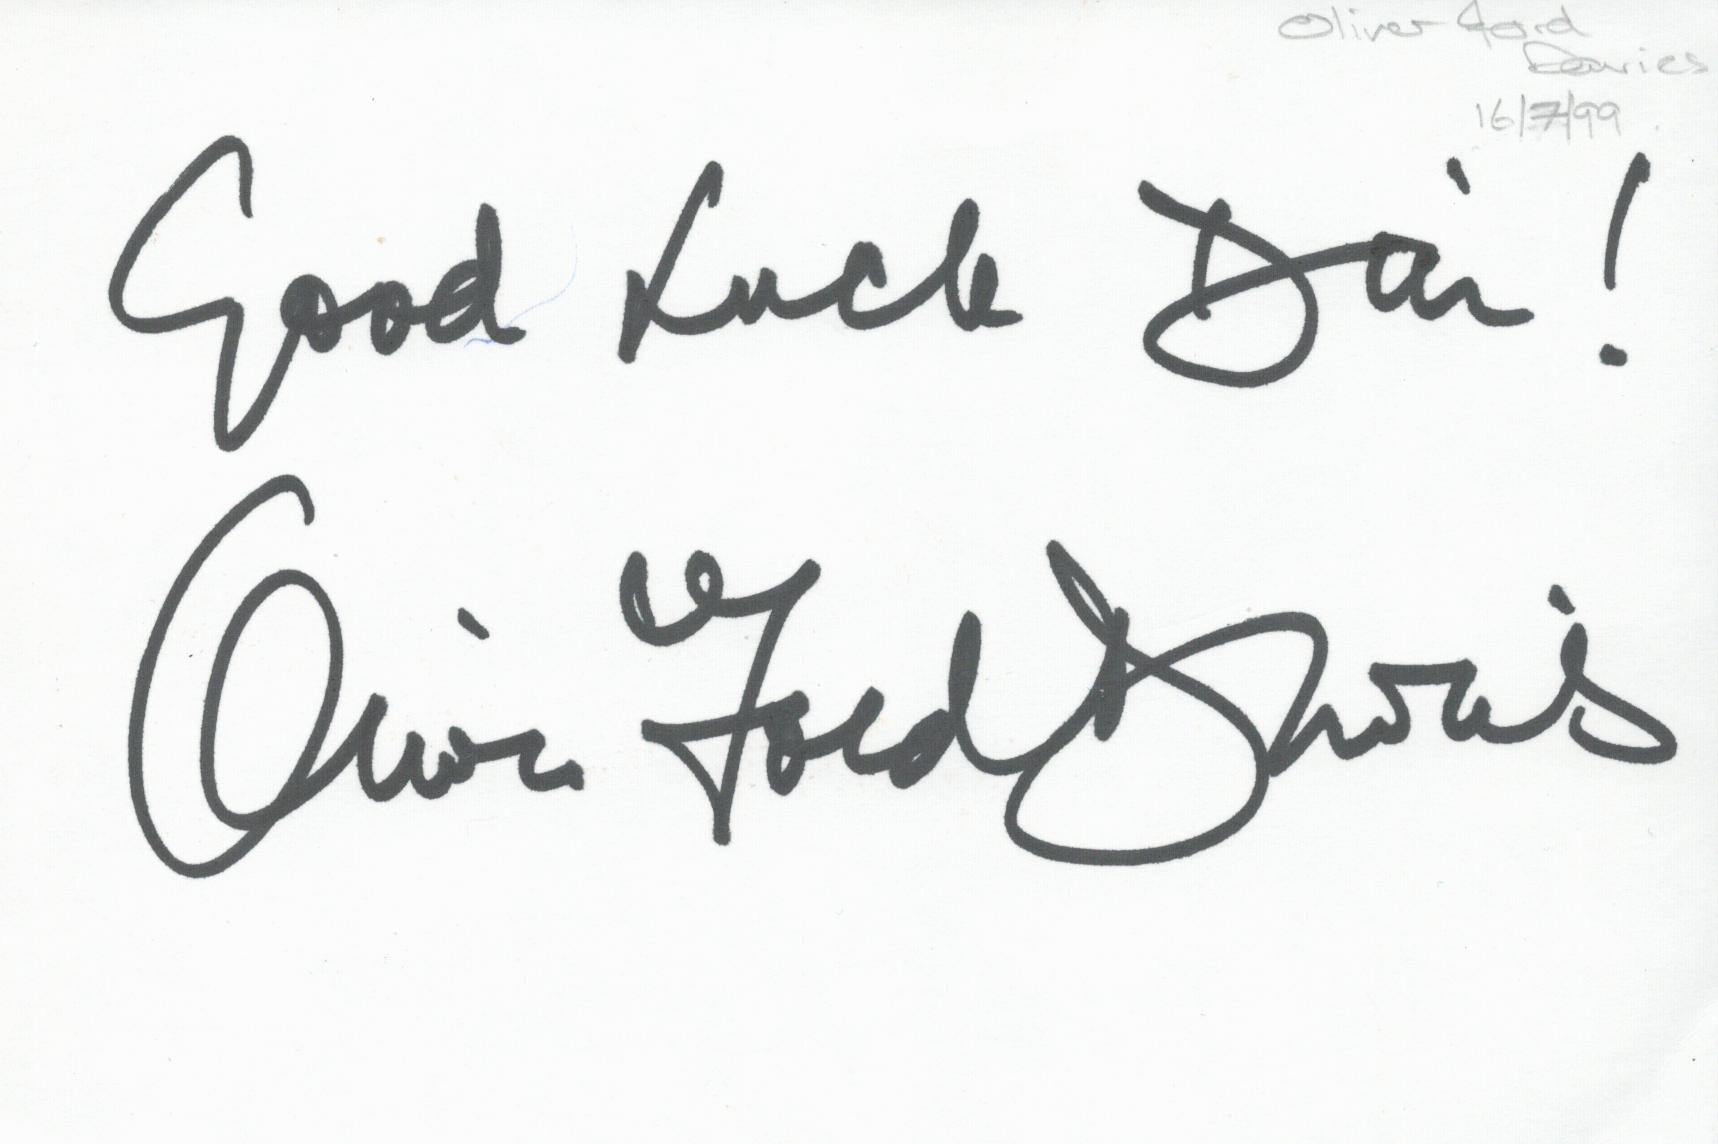 Oliver Ford
Davies
16/7/99
Good Luck
Oliver Ford Davies